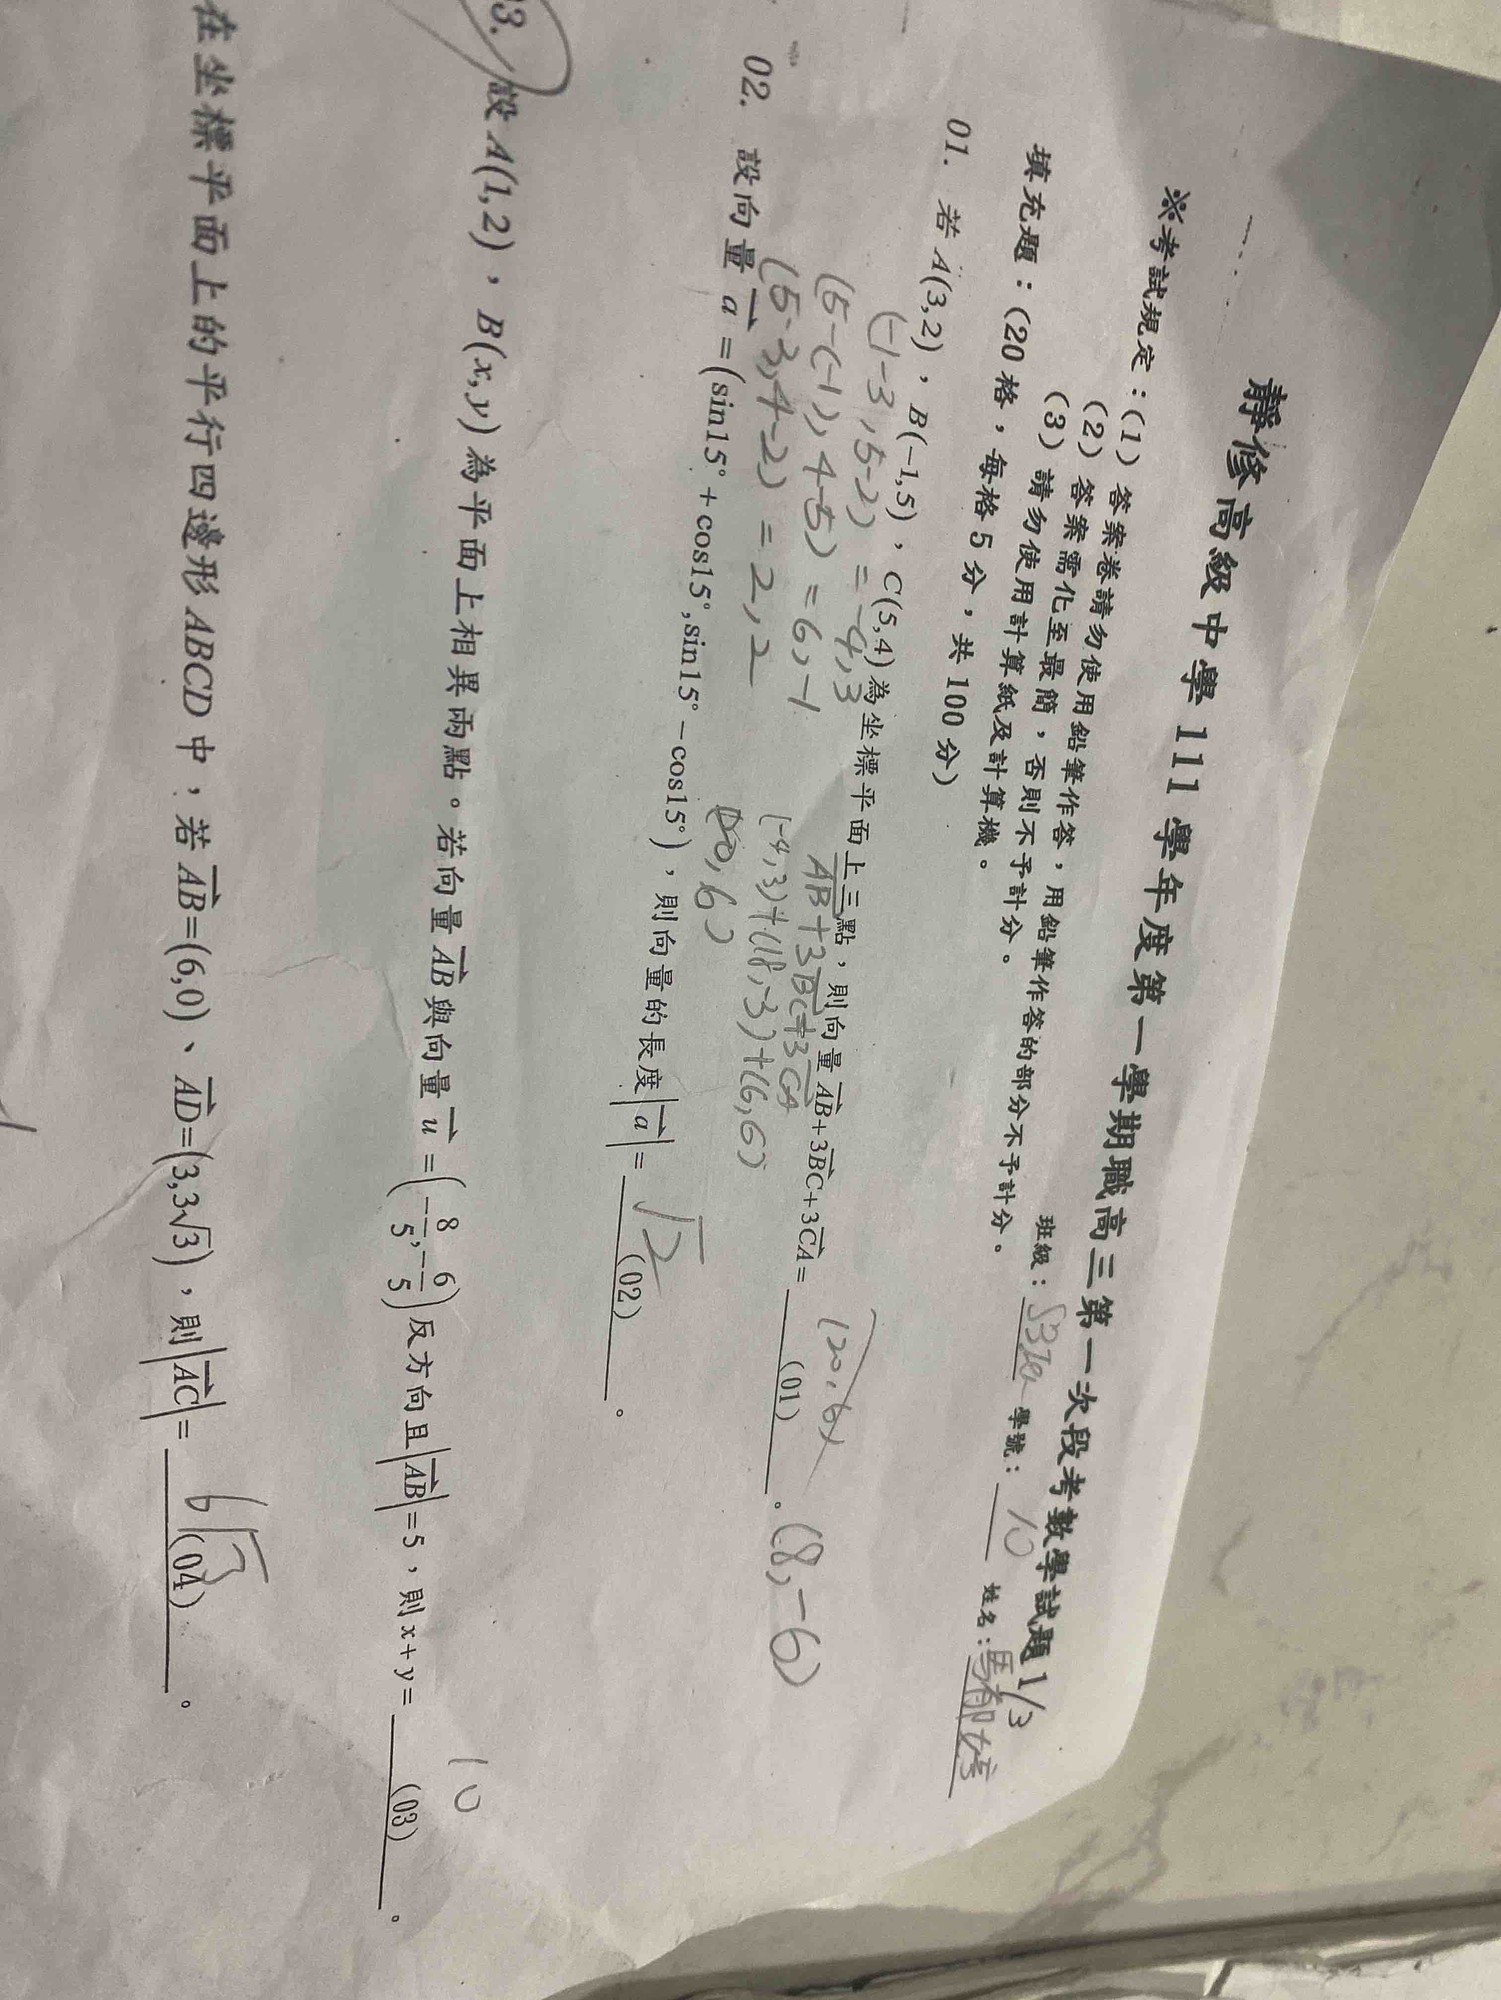 靜修高級中學 111 學年度第一學期職高三第一次段考數學試題 1/3
※考試規定：(1) 答案卷請勿使用鉛筆作答，用鉛筆作答的部分不予計分。
(2) 答案需化至最簡，否則不予計分。
(3) 請勿使用計算紙及計算機。
班級： 學號：10 姓名：
填充題：(20 格，每格 5 分，共 100 分)
01. 若 A(3,2)，B(-1,5)，C(5,4) 為坐標平面上三點，則向量 \overrightarrow{AB}+3\overrightarrow{BC}+3\overrightarrow{CA}= (01) 。 (8,-6)
(20,6)
(-1-3,5-2) = -4,3
(5-(-1),4-5) = 6,-1
(5-3,4-2) = 2,2
AB+3BC+3CA
(-4,3)+(18,-3)+(6,6)
(20,6)
02. 設向量 \overrightarrow{a}=(sin15°+cos15°,sin15°-cos15°)，則向量的長度|\overrightarrow{a}|= √2 (02) 。
03. 設 A(1,2)，B(x,y) 為平面上相異兩點。若向量 \overrightarrow{AB} 與向量 \overrightarrow{u}=(-8/5,-6/5) 反方向且|\overrightarrow{AB}|=5，則 x+y= 10 (03) 。
在坐標平面上的平行四邊形 ABCD 中，若 \overrightarrow{AB}=(6,0)、\overrightarrow{AD}=(3,3√3)，則|\overrightarrow{AC}|= 6√3 (04) 。